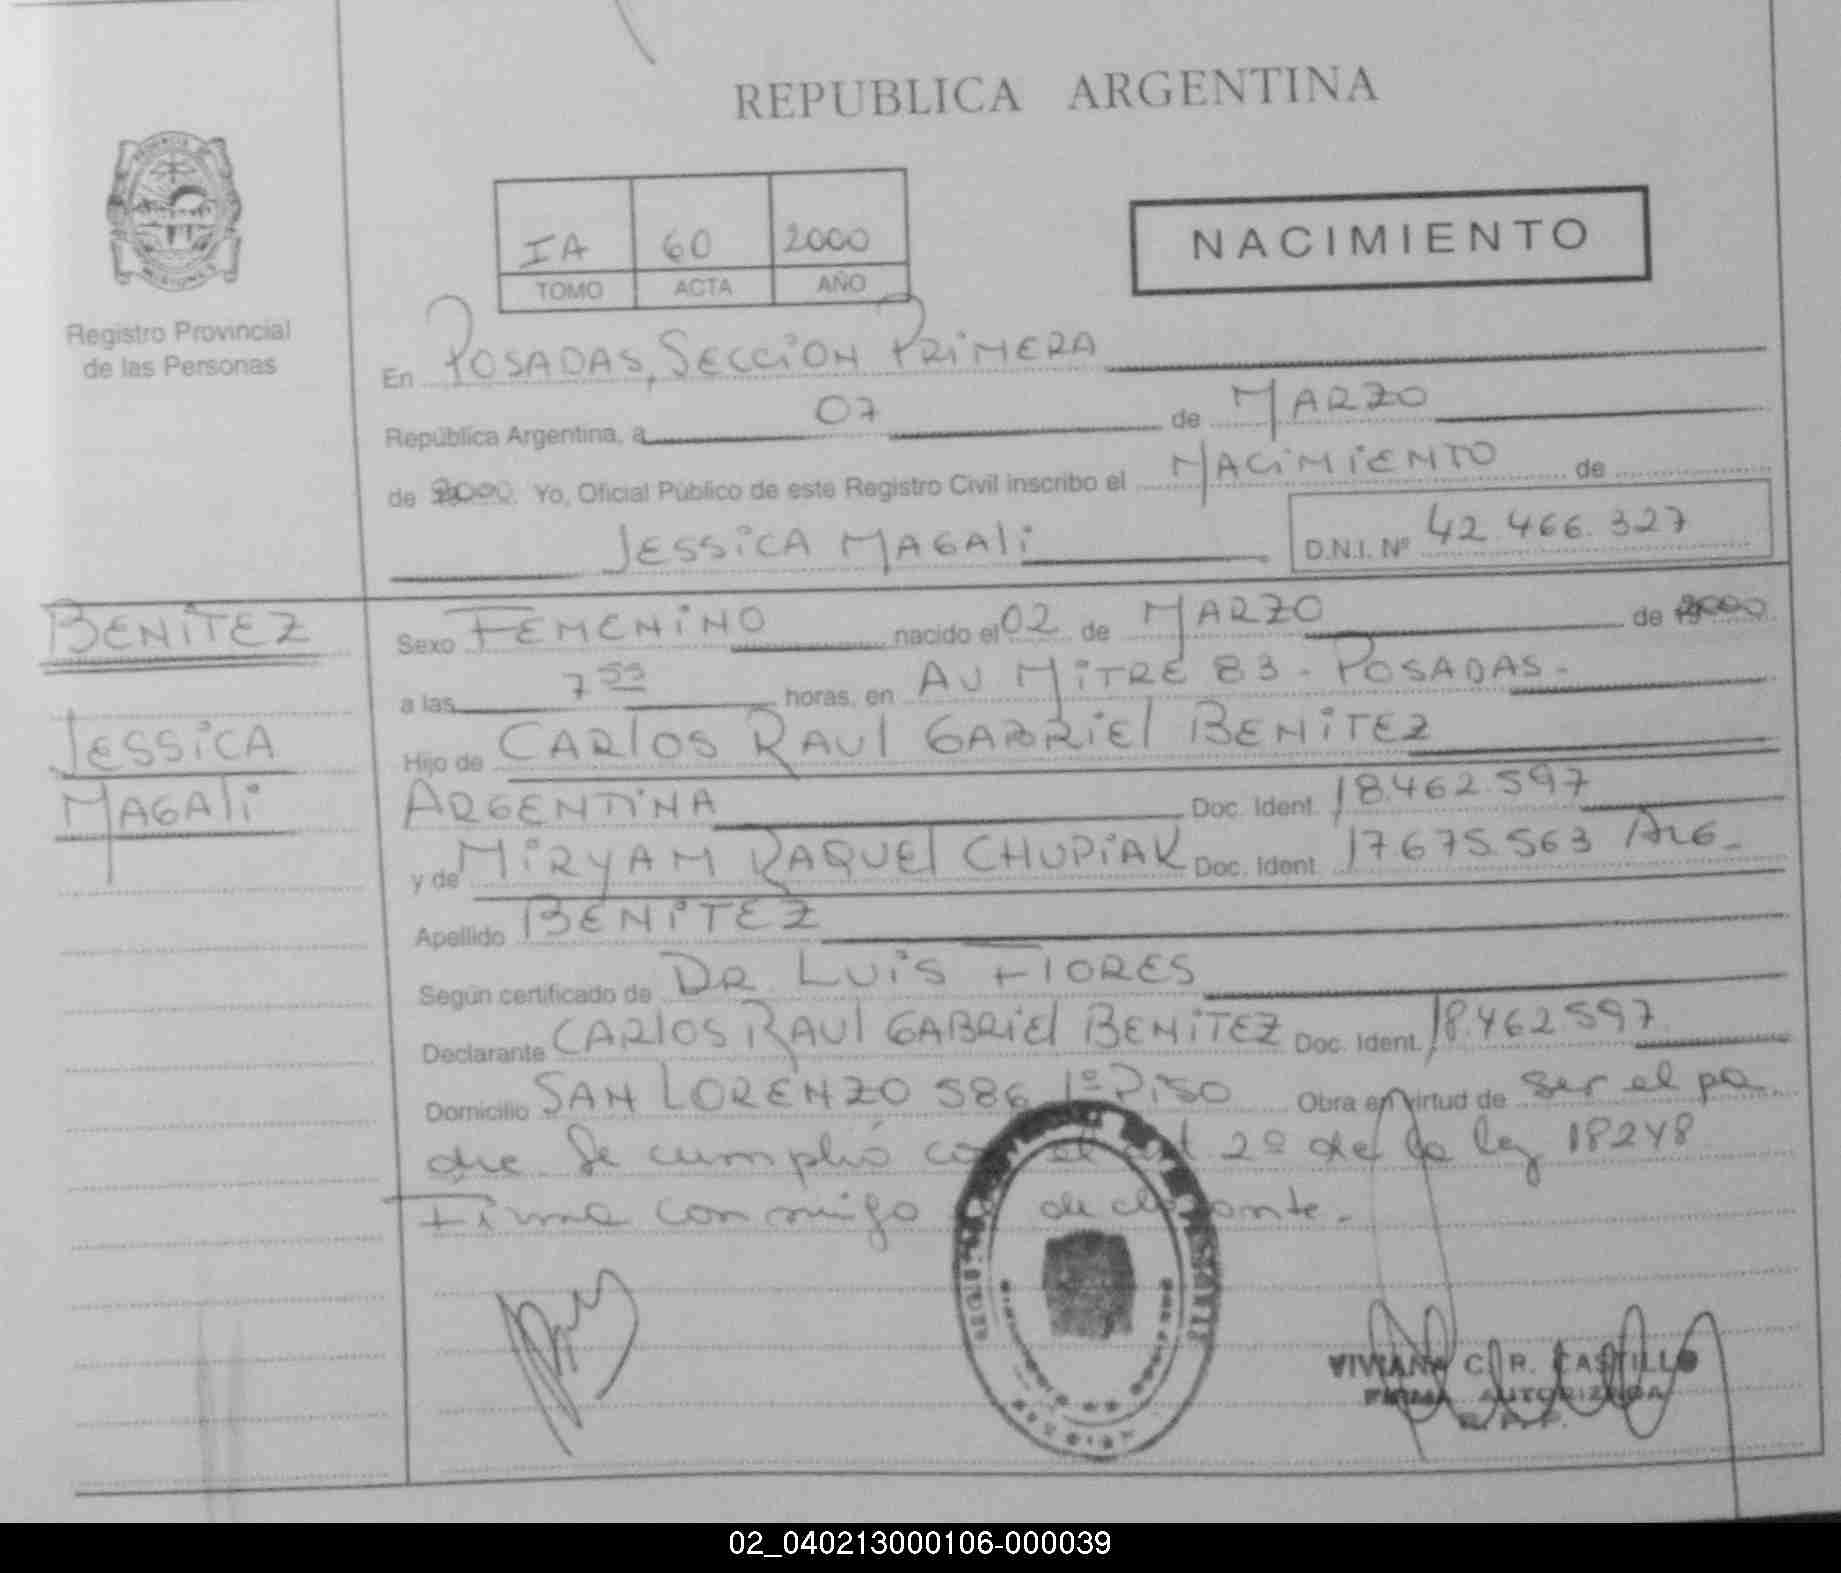 REPUBLICA ARGENTINA
PROVINCIA DE MISIONES
Registro Provincial
de las Personas
IA 60 2000
TOMO ACTA AÑO
NACIMIENTO
En POSADAS, SECCION PRIMERA
República Argentina, a 07 de MARZO
de 2000 Yo, Oficial Público de este Registro Civil inscribo el NACIMIENTO de
JESSICA MAGALI
D.N.I. Nº 42.466.327
BENITEZ
JESSICA
MAGALI
Sexo FEMENINO nacido el 02 de MARZO de 2000
a las 7 55 horas, en AV MITRE 83 - POSADAS-
Hijo de CARLOS RAUL GABRIEL BENITEZ
ARGENTINA Doc. Ident. 18.462.597
y de MIRYAM RAQUEL CHUPIAK Doc. Ident. 17.675.563 ARG-
Apellido BENITEZ
Según certificado de DR LUIS FLORES
Declarante CARLOS RAUL GABRIEL BENITEZ Doc. Ident. 18.462.597
Domicilio SAN LORENZO 586 1º PISO Obra en virtud de ser el pa
dre. Se cumplió con el art 2º de la ley 18248
Firma conmigo el declarante.
VIVIANA C. R. CASTILLO
FIRMA AUTORIZADA
R.P.P.
02_040213000106-000039